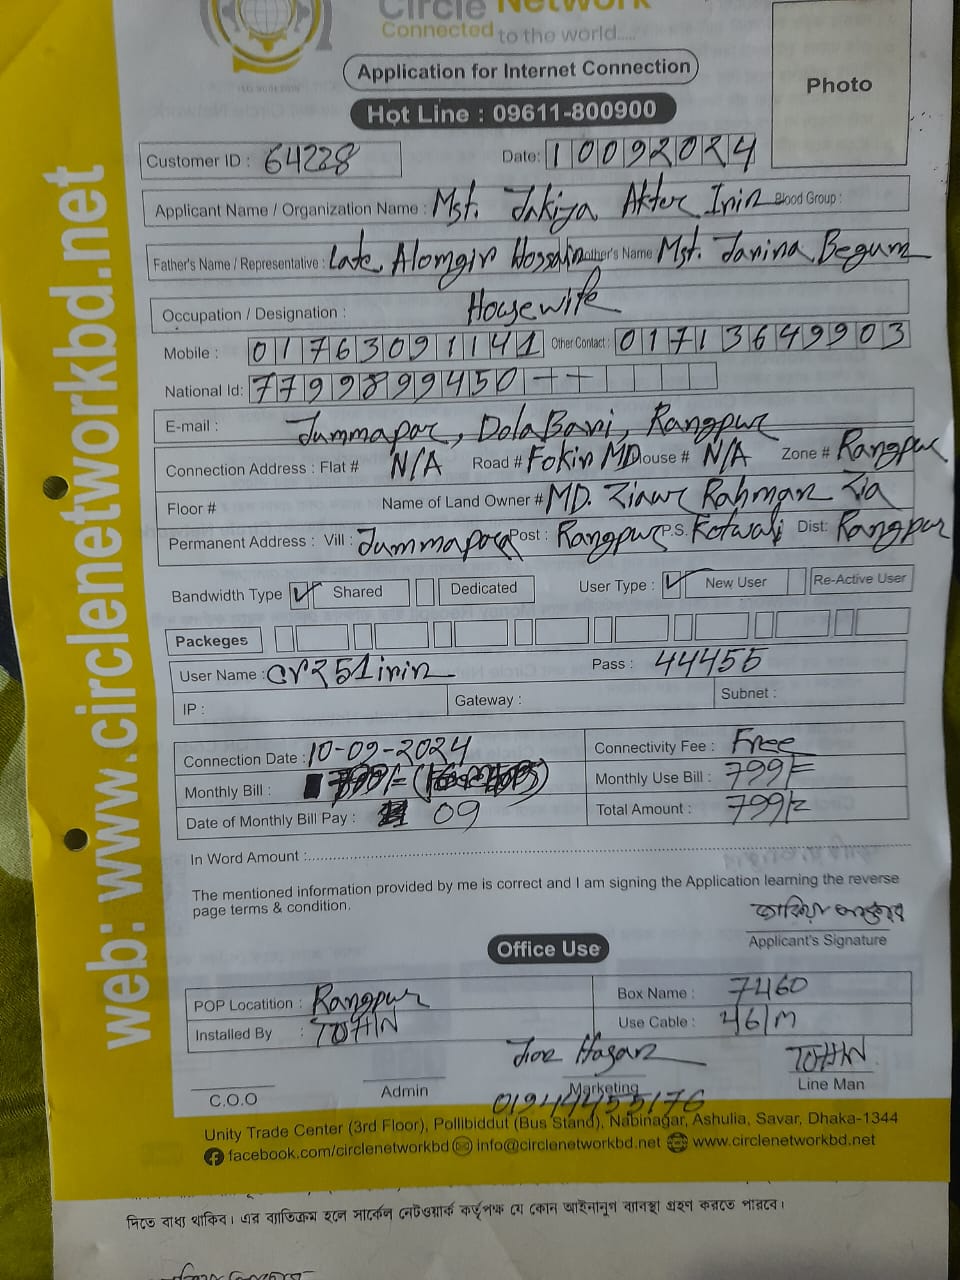 Circle Network
Connected to the world.....
Application for Internet Connection
Photo
Hot Line : 09611-800900
Customer ID : 64228
Date: 10092024
Applicant Name / Organization Name : Mst. Jakiya Akter Irin Blood Group :
Father's Name / Representative : Late, Alomgir Hossain other's Name Mst. Janina Begum
Occupation / Designation : Housewife
Mobile : 01763091141 Other Contact : 01713649903
National Id: 7799899450--
E-mail : Jummapar, DolaBari, Rangpur
Connection Address : Flat # N/A Road # Fokir MD ouse # N/A Zone # Rangpur
Floor # Name of Land Owner # MD. Ziaur Rahman Zia
Permanent Address : Vill : Jummapara Post : Rangpur P.S. Kotwali Dist: Rangpur
Bandwidth Type Shared Dedicated User Type : New User Re-Active User
Packeges
User Name : cr251irin Pass : 44455
IP : Gateway : Subnet :
Connection Date : 10-09-2024 Connectivity Fee : Free
Monthly Bill : 799/= Monthly Use Bill : 799/=
Date of Monthly Bill Pay : 09 Total Amount : 799/=
In Word Amount :
The mentioned information provided by me is correct and I am signing the Application learning the reverse
page terms & condition.
Applicant's Signature
Office Use
POP Locatition : Rangpur Box Name : 7460
Installed By : TOHIN Use Cable : 46/M
Hasan TOHIN
C.O.O Admin Marketing Line Man
Unity Trade Center (3rd Floor), Pollibiddut (Bus Stand), Nabinagar, Ashulia, Savar, Dhaka-1344
facebook.com/circlenetworkbd info@circlenetworkbd.net www.circlenetworkbd.net
দিতে বাধ্য থাকিব। এর ব্যতিক্রম হলে সার্কেল নেটওয়ার্ক কর্তৃপক্ষ যে কোন আইনানুগ ব্যবস্থা গ্রহণ করতে পারবে।
web: www.circlenetworkbd.net